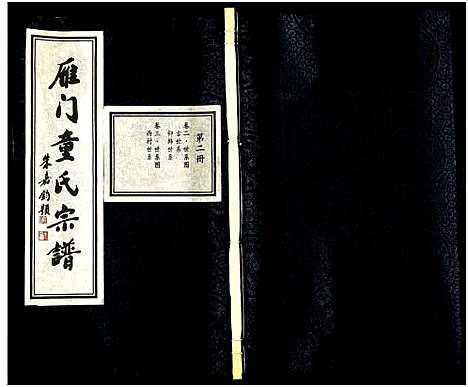 雁门童氏宗譜
朱嘉鈞題
第二冊
卷二·世系图
古世系
仰韩世系
卷三·世系图
西村世系